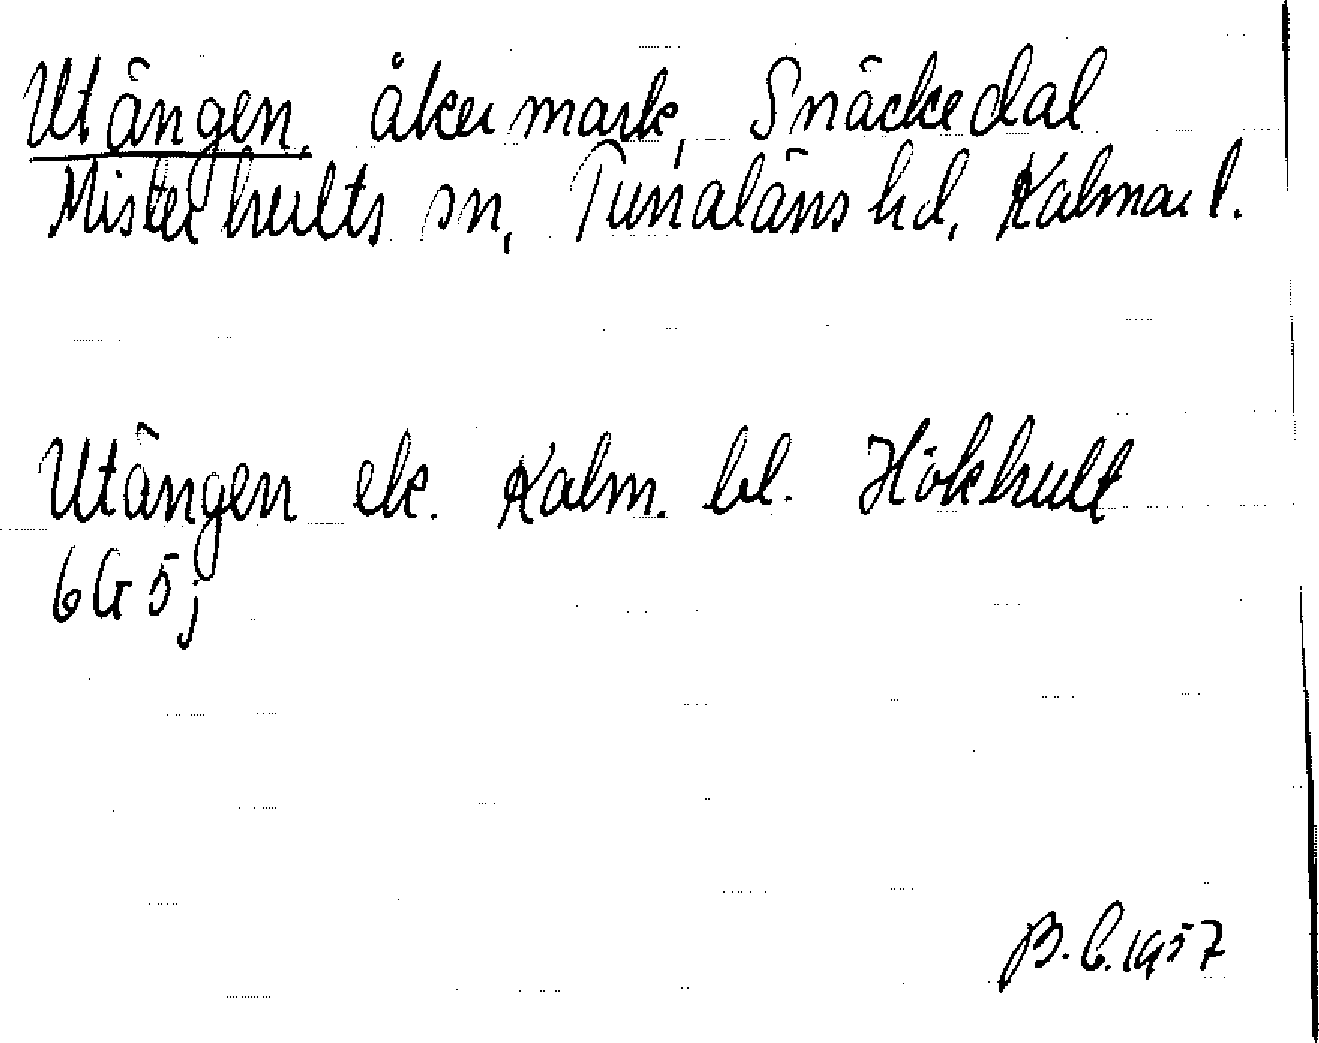 Utängen, åkermark, Snäckedal
Misterhults sn, Tunaläns hd, Kalmar l.
Utängen ek. Kalm. bl. Hökhult
6G 5j
B. C. 1957